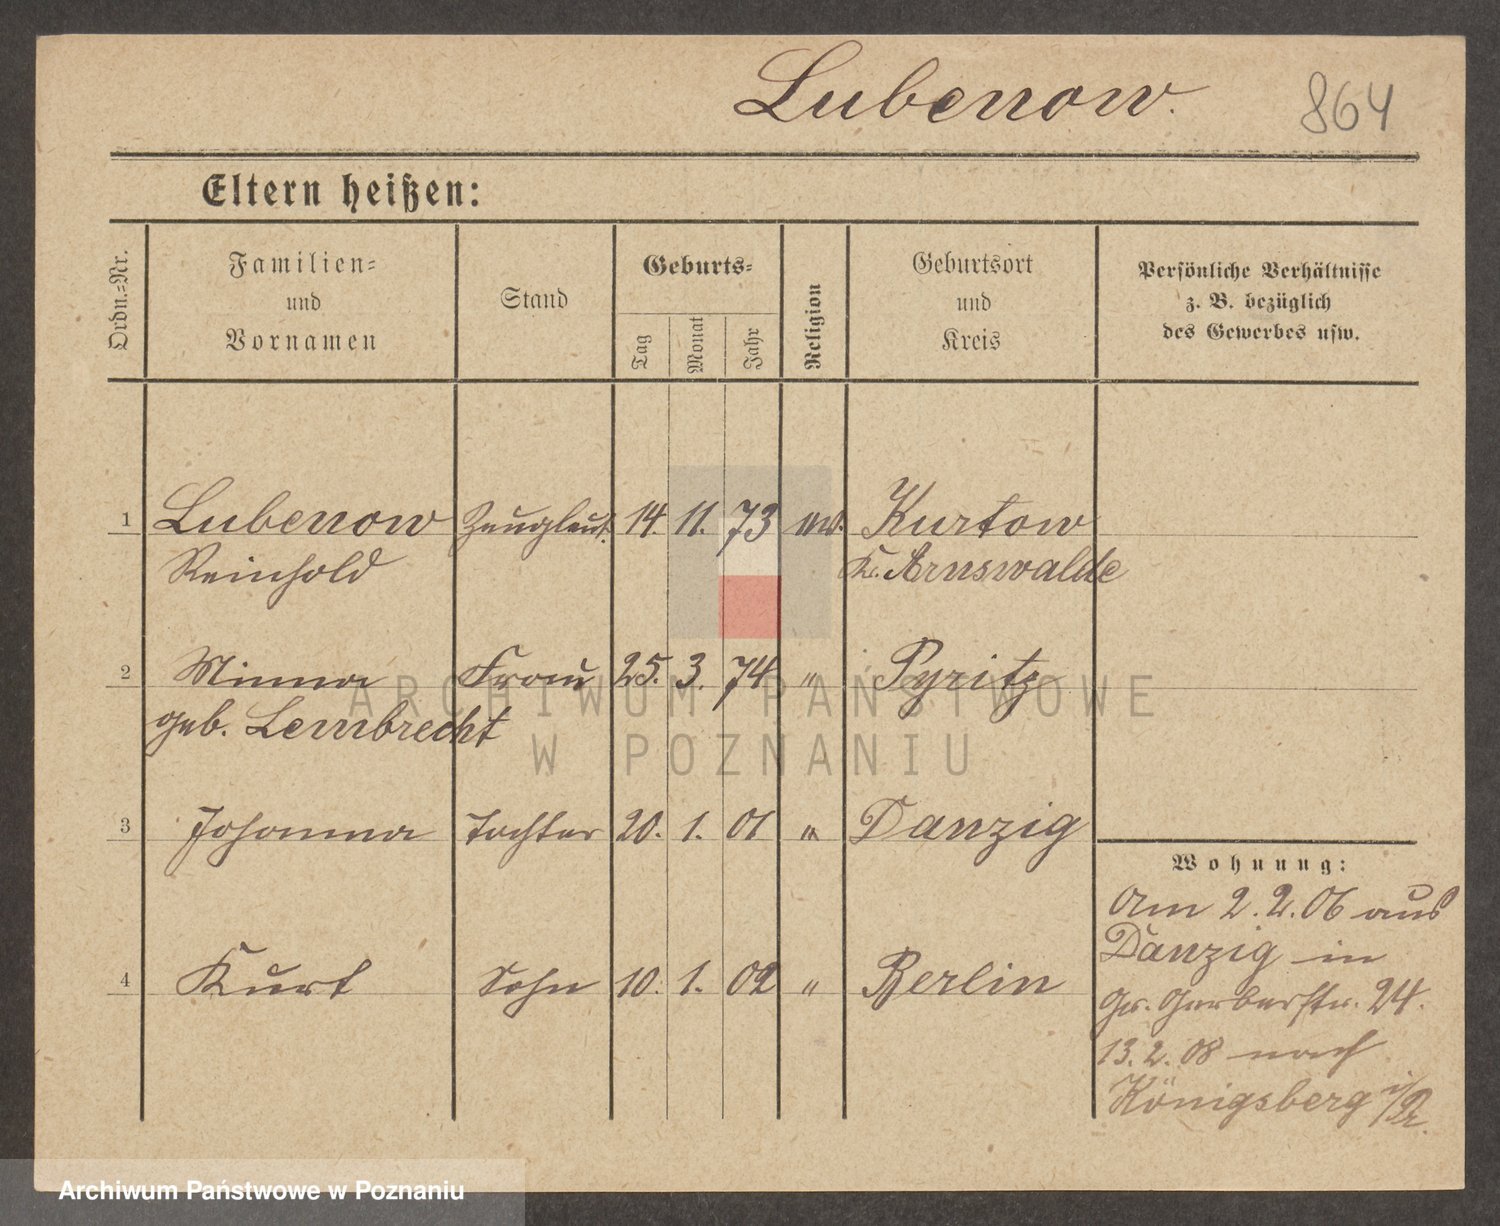 Lubenow.
864
Eltern heißen:
Ordn.-Nr.
Familien-
und
Vornamen
Stand
Geburts-
Tag
Monat
Jahr
Religion
Geburtsort
und
Kreis
Persönliche Verhältnisse
z. B. bezüglich
des Gewerbes usw.
1 Lubenow Zeugleut. 14. 11. 73 ev. Kurtow
Reinhold Kr. Arnswalde
2 Minna Frau 25. 3. 74 " Pyritz
geb. Lembrecht
ARCHIWUM PAŃSTWOWE
W POZNANIU
3 Johanna Tochter 20. 1. 01 " Danzig
4 Kurt Sohn 10. 1. 02 " Berlin
Wohnung:
Am 2.2.06 aus
Danzig in
Gr. Gerberstr. 24.
13.2.08 nach
Königsberg i/Pr.
Archiwum Państwowe w Poznaniu